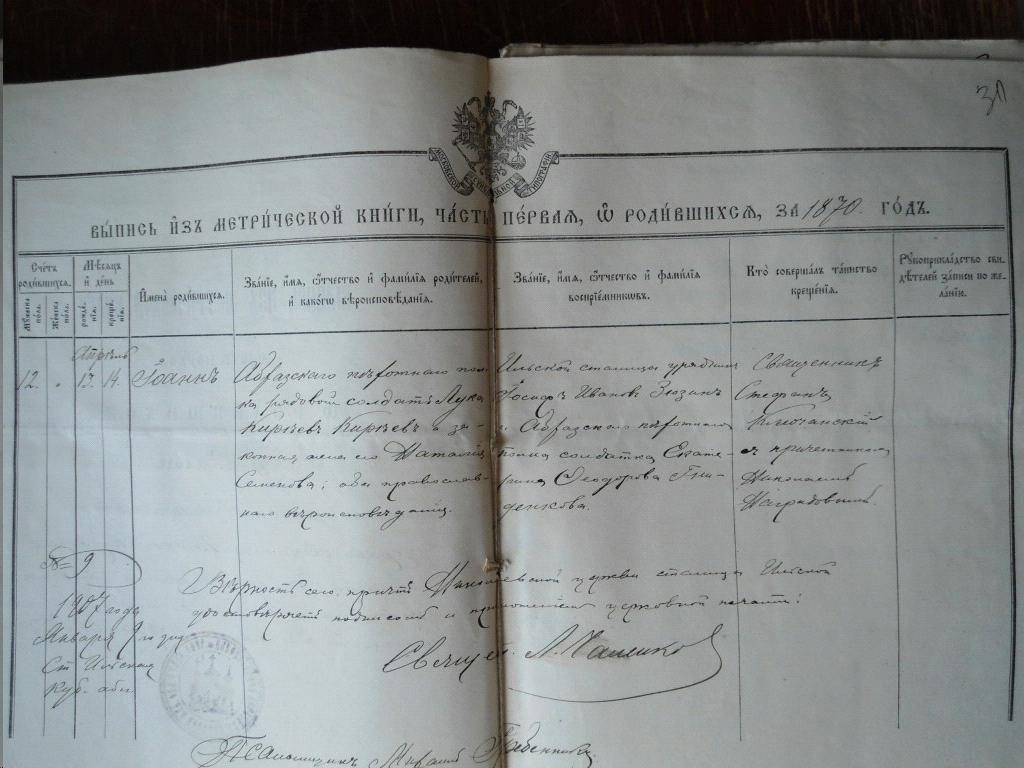 31
МОСКОВСКОЙ СѴНОДАЛЬНОЙ ТИПОГРАФІИ
ВЫПИСЬ ИЗЪ МЕТРИЧЕСКОЙ КНИГИ, ЧАСТЬ ПЕРВАЯ, Ѡ РОДИВШИХСЯ, ЗА 1870 ГОДЪ.
Счетъ родившихся.
Мужеска пола.
Женска пола.
Мѣсяцъ и день
рожденія.
крещенія.
Имена родившихся.
Званіе, имя, ѻтчество и фамилія родителей,
и какогѡ вѣроисповѣданія.
Званіе, имя, ѻтчество и фамилія
воспріемникѡвъ.
Кто совершалъ таинство
крещенія.
Рукоприкладство сви-
дѣтелей записи по же-
ланію.
Апрѣль
12. " 13. 14. Іоаннъ
Абхазскаго пѣхотнаго пол-
ка рядовой солдатъ Лука
Кирѣевъ Кирѣевъ и за-
конная жена его Наталія
Семенова; оба православ-
наго вѣроисповѣданія.
Ильской станицы урядникъ
Іосифъ Ивановъ Зюзинъ
и Абхазскаго пѣхотнаго
полка солдатка Екате-
рина Ѳеодорова Гни-
денкова.
Священникъ
Стефанъ
съ причетникомъ
Николаемъ
Наградовскій
№ 9
1907 года
Января 9 го дня
Ст Ильская
Куб. обл.
Вѣрность сего, причтъ Николаевской церкви станицы Ильской
удостовѣряетъ подписомъ и приложеніемъ церковной печати:
Священ.
Псаломщикъ Михаилъ